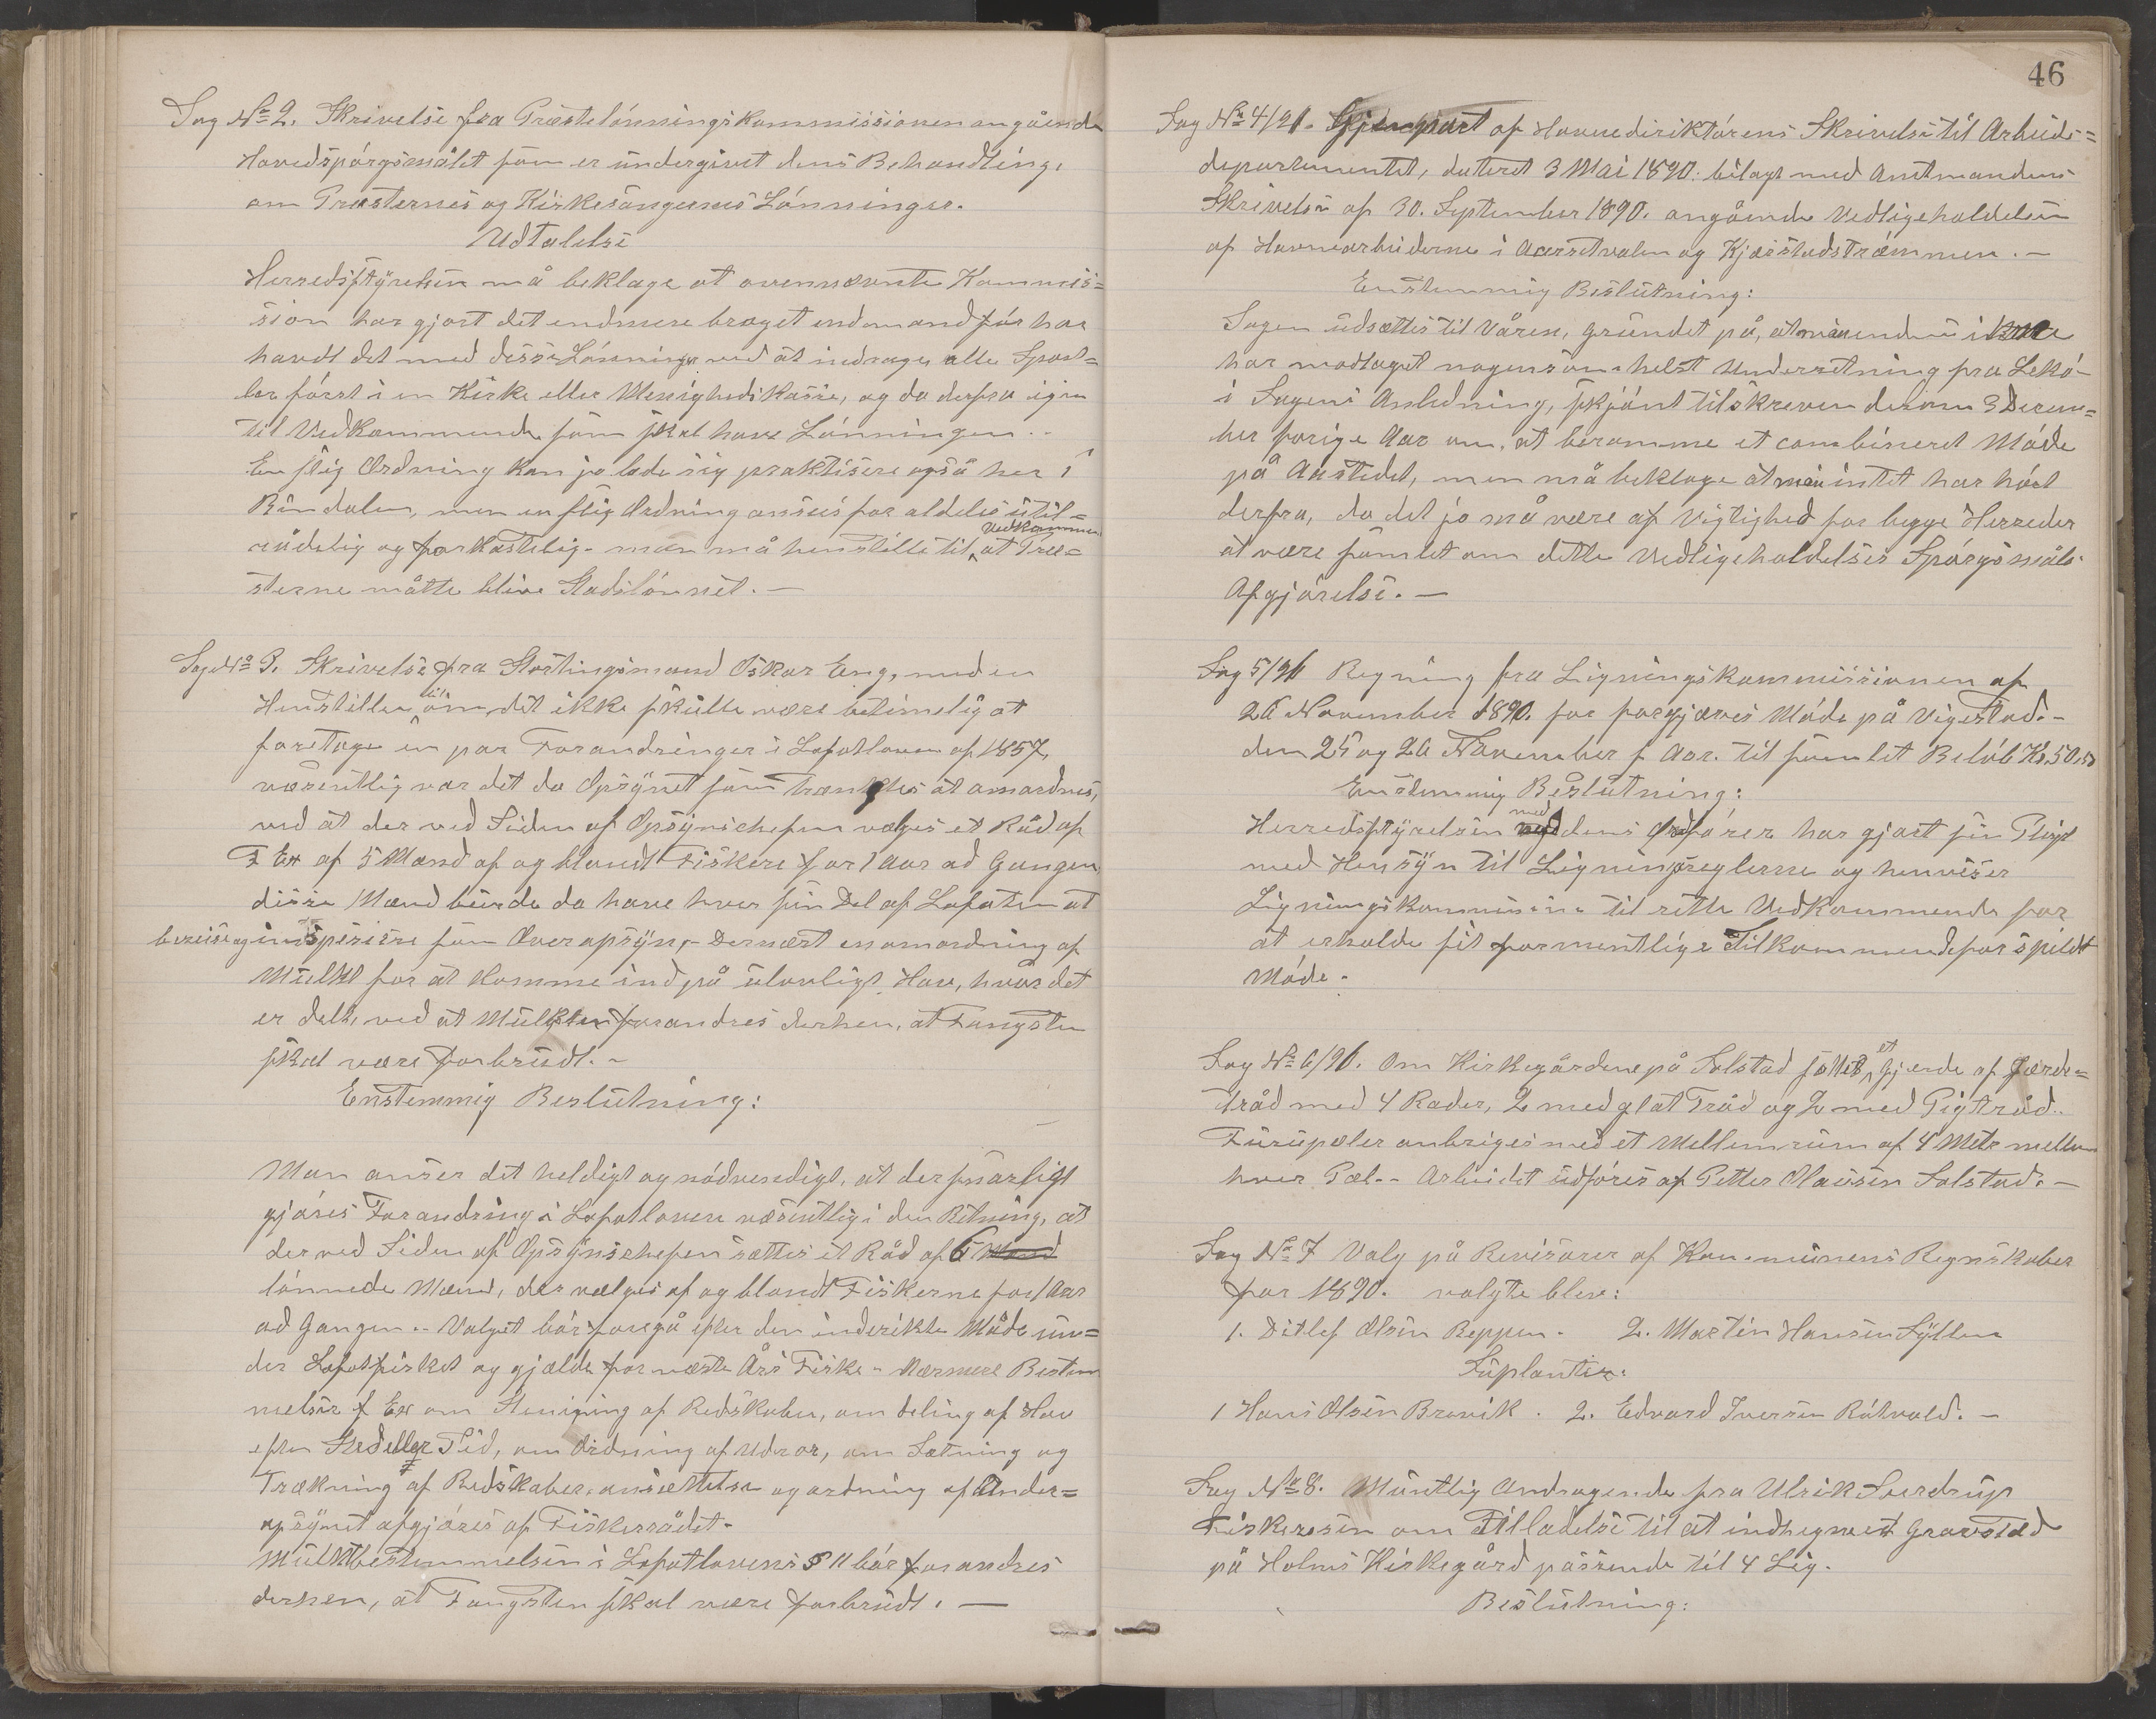 Sag No 2. Skrivelse fra Præstelønningskommissionen angående
Hovedspørgsmålet som er undergivet dens Behandling,
om Præsternes og Kirkesangernes Lønninger.
Udtalelse
Herredsstyrelsen må beklage at ovennævnte Kommis=
sion har gjort det endmere braget endmand før har
havdt det med disse Lønninger ved at inddrage alle Sport=
ler først i en Kirke eller Menighedskasse, og da derfra igjen
til Vedkommende som skal have Lønningen. -
En slig Ordning kan jo lade sig praktisere også her i
Bindalen, men en slig Ordning ansees for aldeles util=
rådelig og forkastelig - man må henstille til Vedkommen at Præ=
sterne måtte blive Statslønnet. -
Sag No 3. Skrivelse fra Stortingsmand Oskar Eng, med en
Henstillen til om det ikke skulle være betimelig at
foretage en par Forandringer i Lofotloven af 1857,
væsentlig var det da Opsynet som tænktes at omordnes,
ved at der ved Siden af Opsynschefen vælges et Råd af
F Ex af 5 Mænd af og blandt Fiskere for 1 Aar ad Gangen
disse Mænd burde da have hver sin Del af Lofoten at
bereise og inspisere som Overopsyn, - Dernæst en omordning af
Mulkt for at komme ind på ulovligt Hav, hvor det
er delt, ved at Mulkten forandres derhen, at Fangsten
skal være forbrudt. -
Enstemmig Beslutning:
Man anser det heldigt og nødvendigt, at der snarligt
gjøres Forandring i Lofotloven væsentlig i den Retning, at
der ved Siden af Opsynschefen sættes et Råd af 6 Mænd
lønnede Mænd, der vælges af og blandt Fiskerne for 1 Aar
ad Gangen. - Valget bør foregå efter den inderikte Måde un=
der Lofotfisket og gjælde for næste Års Fiske - Nærmere Bestem
melser f Ex om Steniging af Redskaber, om deling af Hav
efter Sted eller Tid, om Ordning af Udror, om Sætning og
Trækning af Redskaber, ansættelse og ordning af Under=
opsynet afgjøres af Fiskerrådet -
Mulktbestemmelsen i Lofotlovens § 11 bør forandres
derhen, at Fangsten skal være forbrudt. -
46
Sag No 4/91. Gjenpart af Havnedirektørens Skrivelse til Arbeids=
departementet, dateret 3 Mai 1890. bilagt med Amtmandens
Skrivelse af 30. September 1890. angående Vedligeholdelsen
af Havnearbeiderne i Aarsetvalen og Kjærstadstrømmen. -
Enstemmig Beslutning:
Sagen udsættes til Våren, grundet på, at man endnu ikke
har modtaget nogensomhelst Underretning fra Lekø
i Sagens Anledning, skjønt tilskreven derom 3 Decem=
ber forige Aar om, at beramme et combineret Møde
på Austedet, men må beklage at man intet har hørt
derfra, da det jo må være af Vigtighed for begge Herreder
at være samlet om dette Vedligeholdelses Spørgsmåls
Afgjørelse. -
Sag 5/91 Regning fra Ligningskommissionen af
26 November 1890. for forgjæves Møde på Vigestad. -
den 25 og 26 November f Aar. til samlet Beløb Kr. 50,50
Enstemmig Beslutning:
Herredsstyrelsen med dens Ordfører har gjort sin Pligt
med Hensyn til Ligningsreglerne og henviser
Ligningskommisin. til rette Vedkommende for
at erholde sit formentlige Tilkommende for spildt
Møde.
Sag No 6/91. Om Kirkegårdene på Solstad sættes et Gjerde af Gjerde=
tråd med 4 Rader, 2 med glat Tråd og 2 med Pigtråd.
Furupæler anbriges med et Mellemrum af 4 Meter mellem
hver Pæl. - Arbeidet udføres af Petter Olausen Solstad. -
Sag No 7 Valg på Revisorer af Kommunens Regnskaber
for 1890. valgte blev:
1. Ditlef Olsen Reppen. 2. Martin Hansen Sylten
Suplanter:
1 Hans Olsen Brevik. 2. Edvard Iversen Røtvold. -
Sag No 8. Muntlig Andragende fra Ulrik Sverdrup
Fiskerosen om Tilladelse til at indhegne et Gravsted
på Holms Kirkegård passende til 4 Lig.
Beslutning: